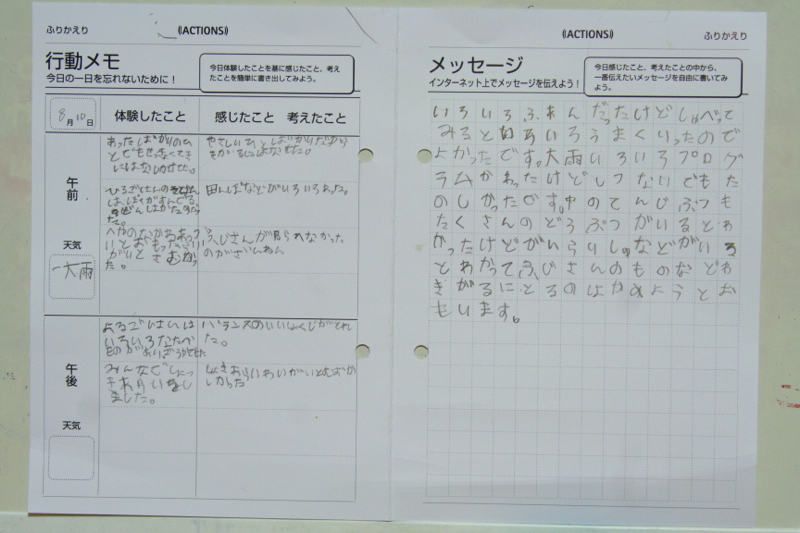 ふりかえり
((ACTIONS))
行動メモ
今日の一日を忘れないために！
今日体験したことを基に感じたこと、考え
たことを簡単に書き出してみよう。
8月10日
体験したこと
感じたこと 考えたこと
午前
あったばかりのひ
とでもせっなくてき
やさしいひとばかりだから
ひろざけさんの
田んぼなどがいろいろあった。
へやのなかああつ
いとおもったら
がいとさむかっ
た。
ふじさんが見られなかった
のがざんねん
天気
大雨
午後
よるごはんは
いろいろなたべ
バランスのいいしょくじがとれ
た。
みんなでしにっ
ました。
しかった
天気
((ACTIONS))
ふりかえり
メッセージ
インターネット上でメッセージを伝えよう！
今日感じたこと、考えたことの中から、
一番伝えたいメッセージを自由に書いてみ
よう。
いろいろふあんだったけどしゃべって
みるといろいろうまくいったので
よかったです。大雨いろいろプログ
ラムかわったけどしつないでもた
のしかったです。中のてんじぶつも
たくさんのどうぶつがいるとわ
かったけどがいらいしゅなどがいる
とわかってふじさんのものなどわ
きがるにとるのはやめようとお
もいます。